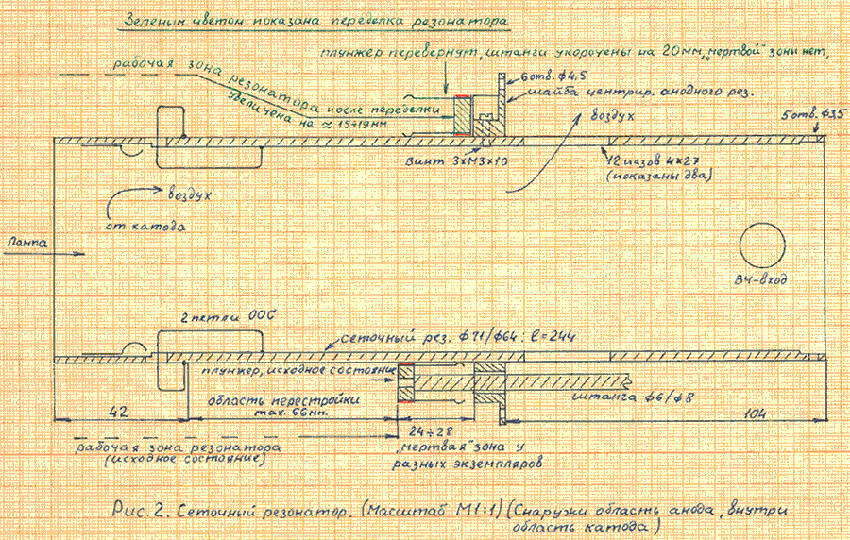 Зеленим цветом показана переделка резонатора
плунжер перевернут, штанги укорочены на 20 мм, „мертвой" зоны нет.
рабочая зона резонатора после переделки
увеличена на ≈ 15÷19 мм
6 отв. ф4,5
шайба центрир. анодного рез.
воздух
5 отв. ф3,5
винт 3×М3×10
12 пазов 4×27
(показаны два)
воздух
от катода
Лампа
ВЧ-вход
2 петли ООС
сеточный рез. ф71/ф64; ℓ=244
плунжер, исходное состояние
область перестройки
max. 66 мм.
штанга ф6/ф8
42
104
24÷28
„мертвая" зона у
разных экземпляров
рабочая зона резонатора
(исходное состояние)
Рис. 2. Сеточный резонатор. (Масштаб М1:1) (Снаружи область анода, внутри
область катода)